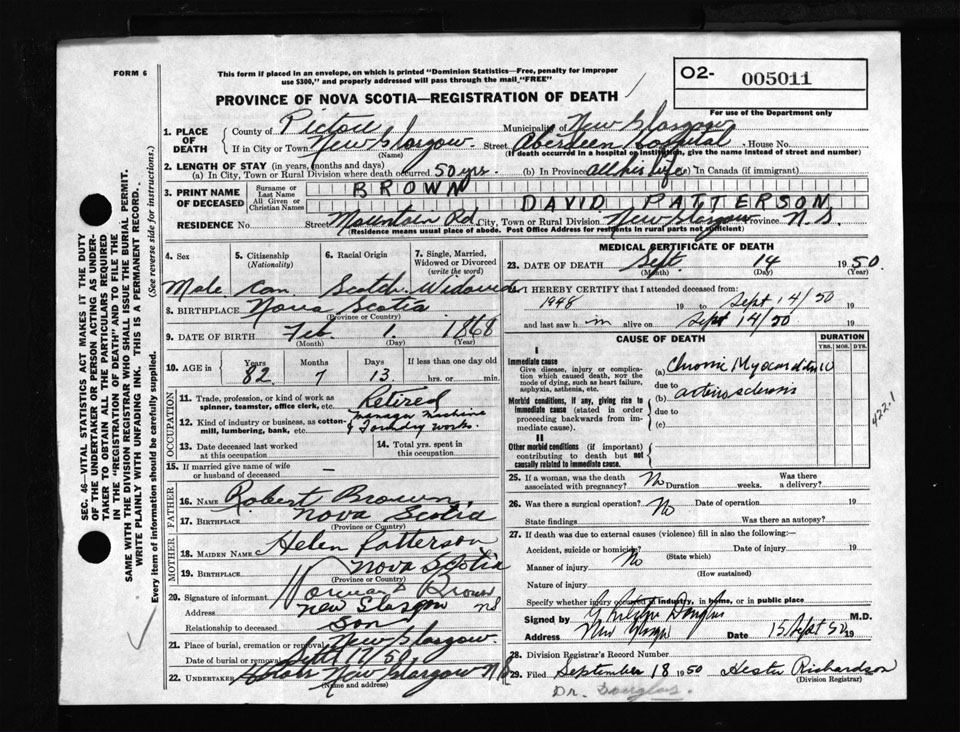 FORM 6
This form if placed in an envelope, on which is printed "Dominion Statistics—Free, penalty for improper
use $300," and properly addressed will pass through the mail "FREE"
O2- 005011
For use of the Department only
PROVINCE OF NOVA SCOTIA—REGISTRATION OF DEATH
1. PLACE OF DEATH
County of Pictou Municipality of New Glasgow
If in City or Town New Glasgow Street Aberdeen Hospital House No.
(Name) (If death occurred in a hospital or institution, give the name instead of street and number)
2. LENGTH OF STAY (in years, months and days)
(a) In City, Town or Rural Division where death occurred 50 yrs. (b) In Province all his life (c) In Canada (if immigrant)
3. PRINT NAME OF DECEASED
Surname or Last Name BROWN
All Given or Christian Names DAVID PATTERSON
RESIDENCE No. Street Mountain Rd City, Town or Rural Division New Glasgow Province N.S.
(Residence means usual place of abode. Post Office Address for residents in rural parts not sufficient)
4. Sex
5. Citizenship (Nationality)
6. Racial Origin
7. Single, Married, Widowed or Divorced (write the word)
Male Can Scotch Widowed
8. BIRTHPLACE Nova Scotia
(Province or Country)
9. DATE OF BIRTH Feb 1 1868
(Month) (Day) (Year)
10. AGE in Years Months Days If less than one day old
82 7 13 hrs. or min.
OCCUPATION
11. Trade, profession or kind of work as spinner, teamster, office clerk, etc. Retired
manager machine
12. Kind of industry or business, as cotton-mill, lumbering, bank, etc. & Foundry works.
13. Date deceased last worked at this occupation
14. Total yrs. spent in this occupation
15. If married give name of wife or husband of deceased —
FATHER
16. NAME Robert Brown
17. BIRTHPLACE Nova Scotia
(Province or Country)
MOTHER
18. MAIDEN NAME Helen Patterson
19. BIRTHPLACE Nova Scotia
(Province or Country)
20. Signature of informant Norman Brown
Address New Glasgow NS
Relationship to deceased Son
21. Place of burial, cremation or removal New Glasgow
Date of burial or removal Sept 17/50
22. UNDERTAKER New Glasgow N.S.
(Name and address)
MEDICAL CERTIFICATE OF DEATH
23. DATE OF DEATH Sept. 14 1950
(Month) (Day) (Year)
24. I HEREBY CERTIFY that I attended deceased from:
1948 19 to Sept 14/50 19
and last saw him alive on Sept 14/50 19
CAUSE OF DEATH
DURATION
YRS. MOS. DYS.
I
Immediate cause
Give disease, injury or complication which caused death, not the mode of dying, such as heart failure, asphyxia, asthenia, etc.
(a) Chronic Myocarditis 10
due to
Morbid conditions, if any, giving rise to immediate cause (stated in order proceeding backwards from immediate cause).
(b) arteriosclerosis
due to
(c)
422.1
II
Other morbid conditions (if important) contributing to death but not causally related to immediate cause.
25. If a woman, was the death associated with pregnancy? No Duration weeks. Was there a delivery?
26. Was there a surgical operation? No Date of operation 19
State findings Was there an autopsy?
27. If death was due to external causes (violence) fill in also the following:
Accident, suicide or homicide? Date of injury 19
(State which)
Manner of injury No
(How sustained)
Nature of injury
Specify whether injury occurred in industry, in home, or in public place
Signed by Douglas M.D.
Address New Glasgow Date 15 Sept 50 19
28. Division Registrar's Record Number
29. Filed September 18 1950 Hester Richardson
(Division Registrar)
Dr. Douglas.
SEC. 46—VITAL STATISTICS ACT MAKES IT THE DUTY
OF THE UNDERTAKER OR PERSON ACTING AS UNDER-
TAKER TO OBTAIN ALL THE PARTICULARS REQUIRED
IN THE "REGISTRATION OF DEATH" AND TO FILE THE
SAME WITH THE DIVISION REGISTRAR WHO SHALL ISSUE THE BURIAL PERMIT.
WRITE PLAINLY WITH UNFADING INK. THIS IS A PERMANENT RECORD.
Every item of information should be carefully supplied. (See reverse side for instructions.)